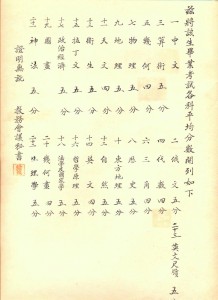 茲將該生畢業考試各科平均分數開列如下
一 中文 五分
二 俄文 五分
三 算術 五分
四 代數 四分
五 幾何 四分
六 三角 四分
七 物理 五分
八 歷史 五分
九 地理 五分
十 東方地理 五分
十一 天文 四分
十二 自然 五分
十三 衛生 五分
十四 英文 四分
十五 拉丁文 五分
十六 哲學原理 五分
十七 政治經濟 五分
十八 法學通論 五分
十九 圖畫 五分
二十 幾何畫 四分
二十一 神法 五分
二十二 心理學 五分
二十三 英文尺牘 五
證明無訛
教務會議秘書